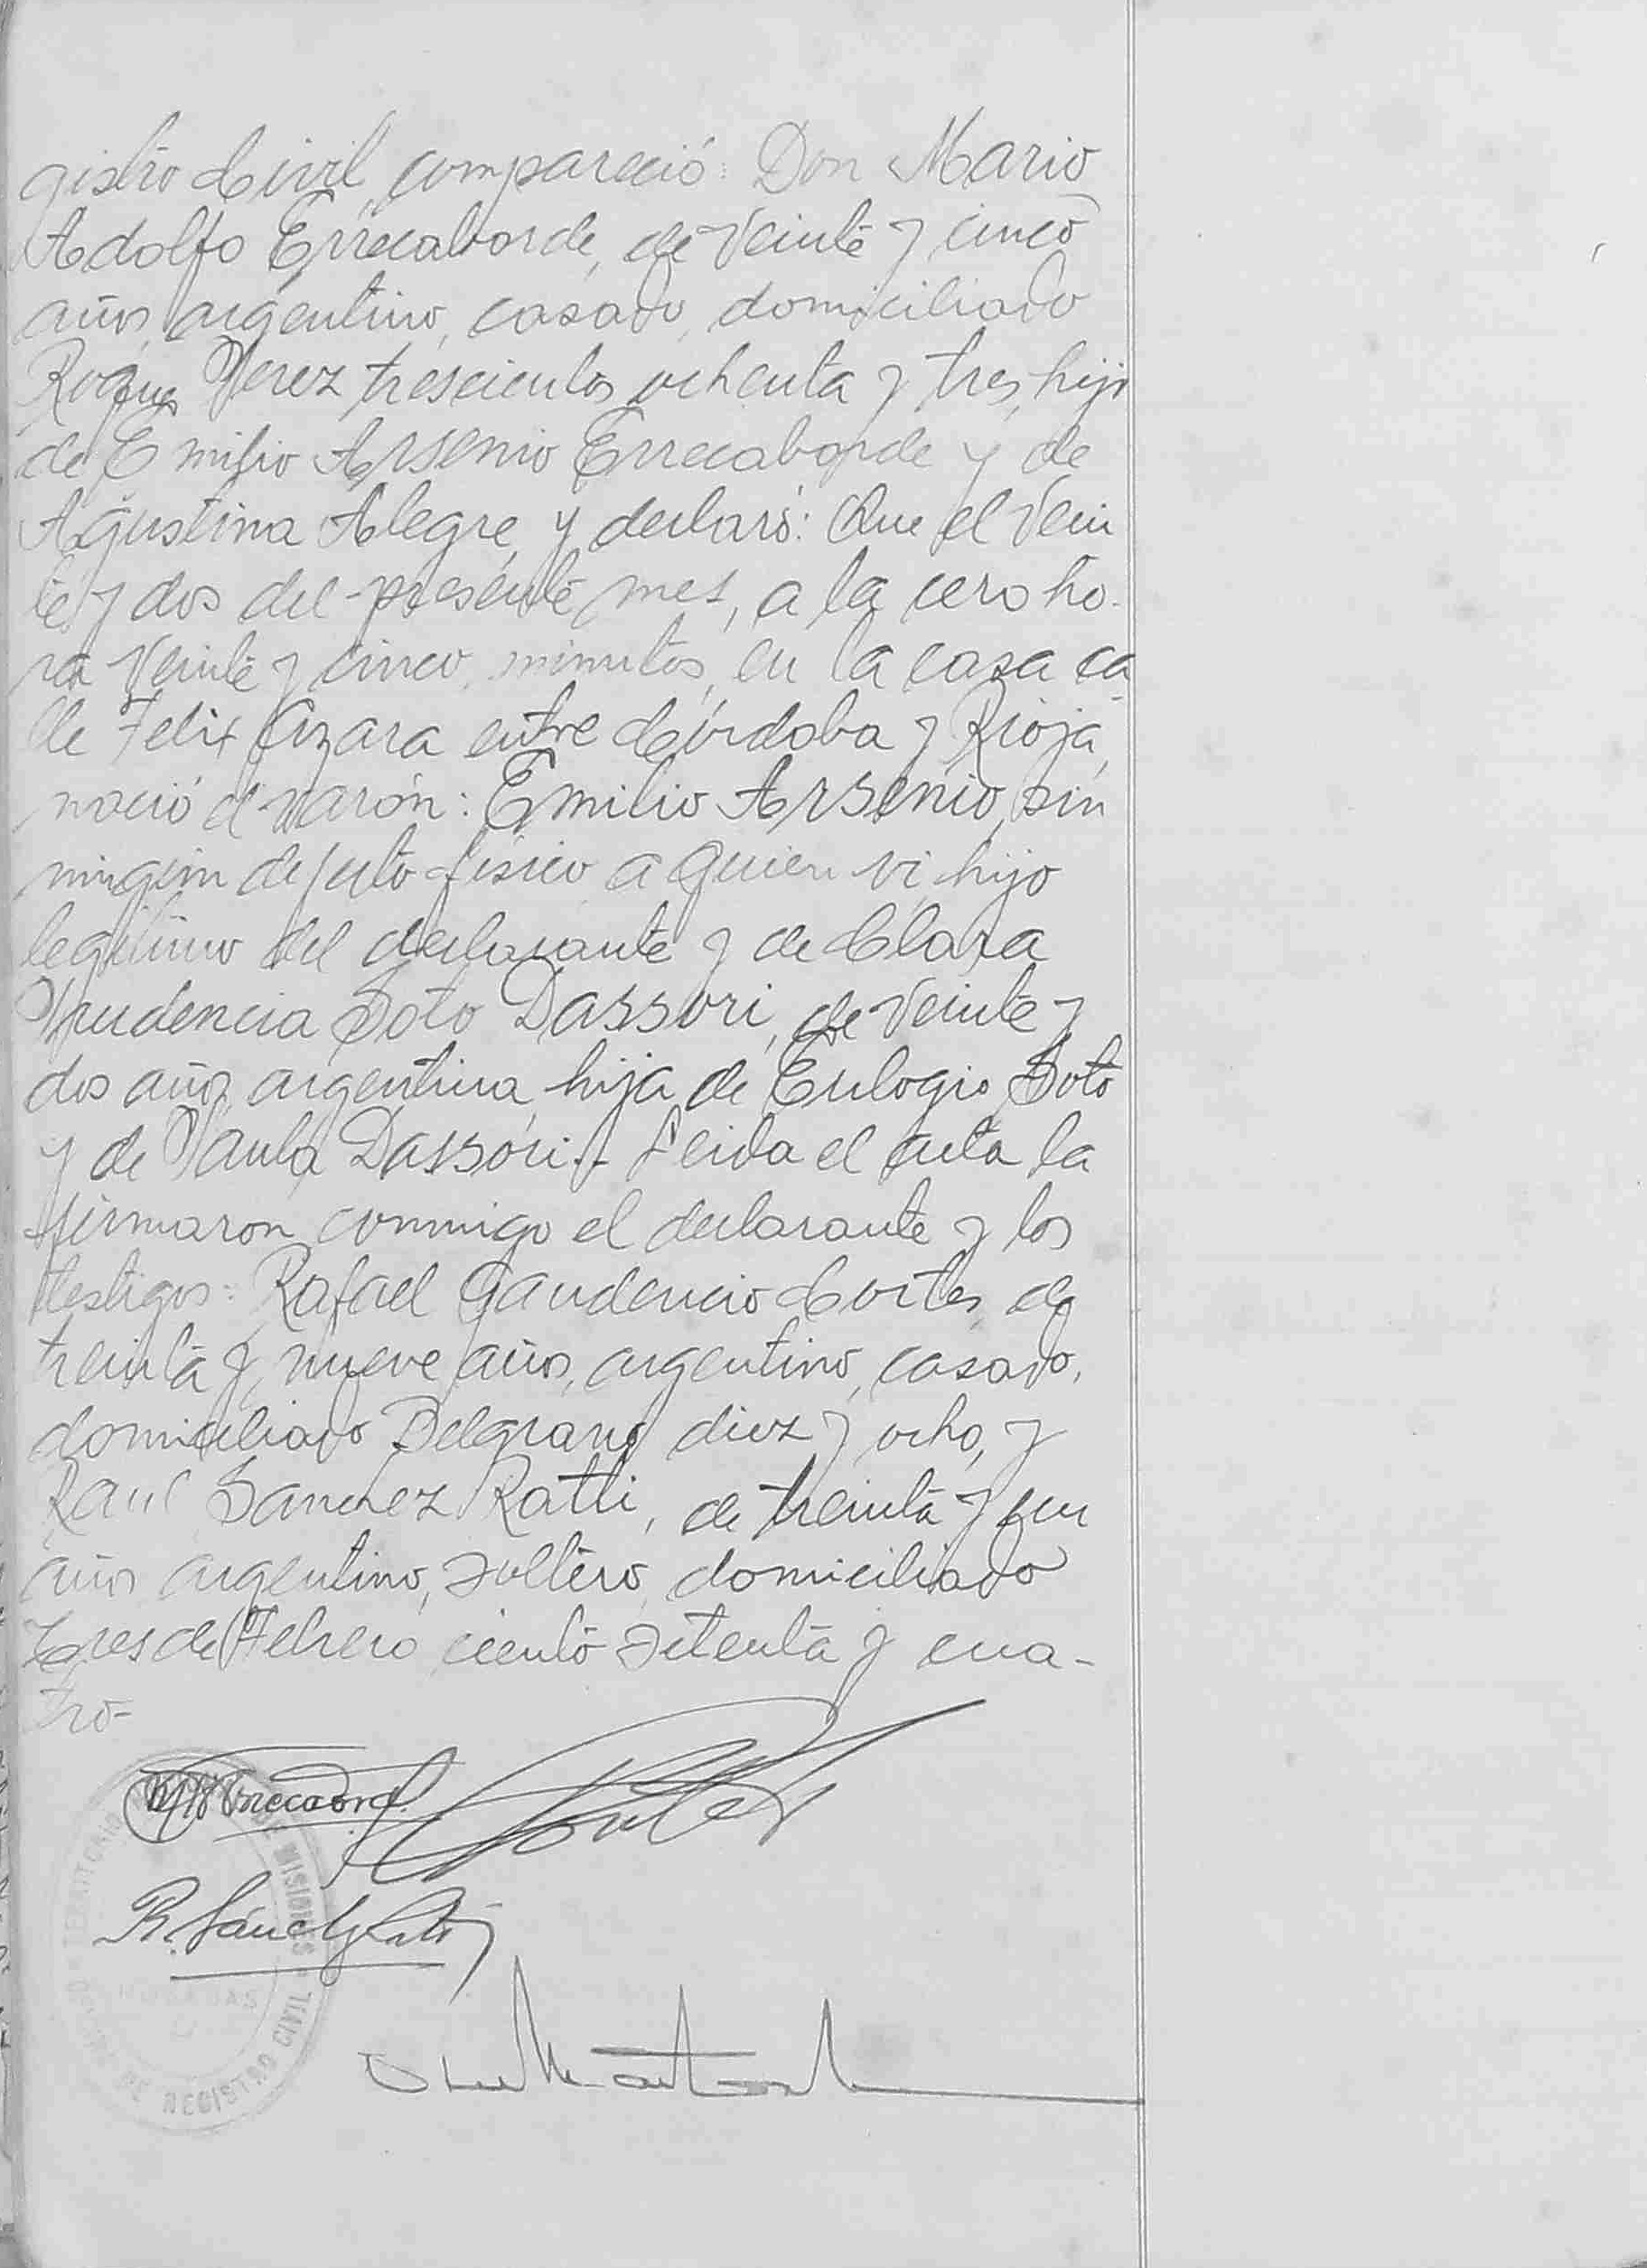 gistro Civil, compareció: Don Mario
Adolfo Errecaborde, de veinte y cinco
años, argentino, casado, domiciliado
Roque Perez trescientos ochenta y tres, hijo
de Emilio Arsenio Errecaborde y de
Agustina Alegre, y declaró: Que el vein
te y dos del presente mes, a la cero ho-
ra veinte y cinco minutos, en la casa ca
lle Felix Azara entre Córdoba y Rioja,
nació el varón: Emilio Arsenio, sin
ningún defecto físico a quien vi, hijo
legítimo del declarante y de Clara
Prudencia Soto Dassori, de veinte y
dos años, argentina, hija de Eulogio Soto
y de Paula Dassori.- Leida el acta la
firmaron conmigo el declarante y los
testigos: Rafael Gaudencio Cortes, de
treinta y nueve años, argentino, casado,
domiciliado Belgrano diez y ocho, y
Raul Sanchez Ratti, de treinta y un
años argentino, soltero, domiciliado
Tres de Febrero ciento setenta y cua-
tro-
MA Errecaborde
Cortes
R. Sánchez Ratti
MISIONES
REGISTRO CIVIL
POSADAS